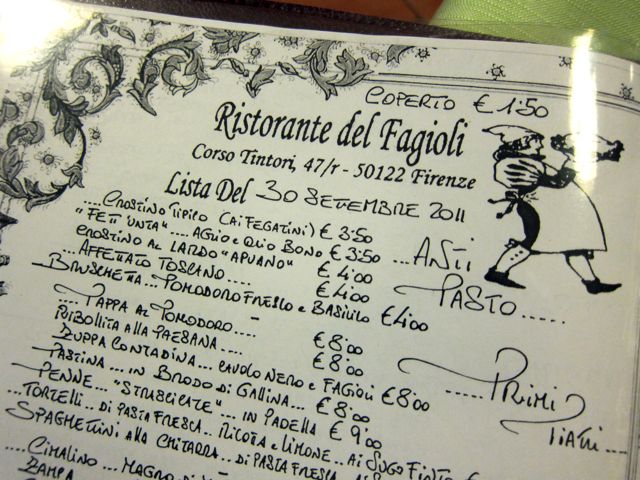 COPERTO € 1'50
Ristorante del Fagioli
Corso Tintori, 47/r - 50122 Firenze
Lista Del 30 SETTEMBRE 2011
....CROSTINO TIPICO (AI FEGATINI) € 3'50
"FETT'UNTA"....AGLIO E OLIO BONO € 3'50
CROSTINO AL LARDO "APUANO" € 4'00
...AFFETTATO TOSCANO..... € 4'00
BRUSCHETTA...POMODORO FRESCO E BASILICO €4'00
...ANTI
PASTO.....
....PAPPA AL POMODORO..... € 8'00
RIBOLLITA ALLA PAESANA.... € 8'00
ZUPPA CONTADINA...CAVOLO NERO E FAGIOLI € 8'00
PASTINA...IN BRODO DI GALLINA... € 8'00
PENNE..."STRUSCICATE"...IN PADELLA € 9'00
.....PRIMI
PIATTI....
TORTELLI..DI PASTA FRESCA..RICOTTA E LIMONE..AI SUGO FINTO €
SPAGHETTINI ALLA CHITARRA...DI PASTA FRESCA
...CIMALINO...MAGRO DI
ZAMPA